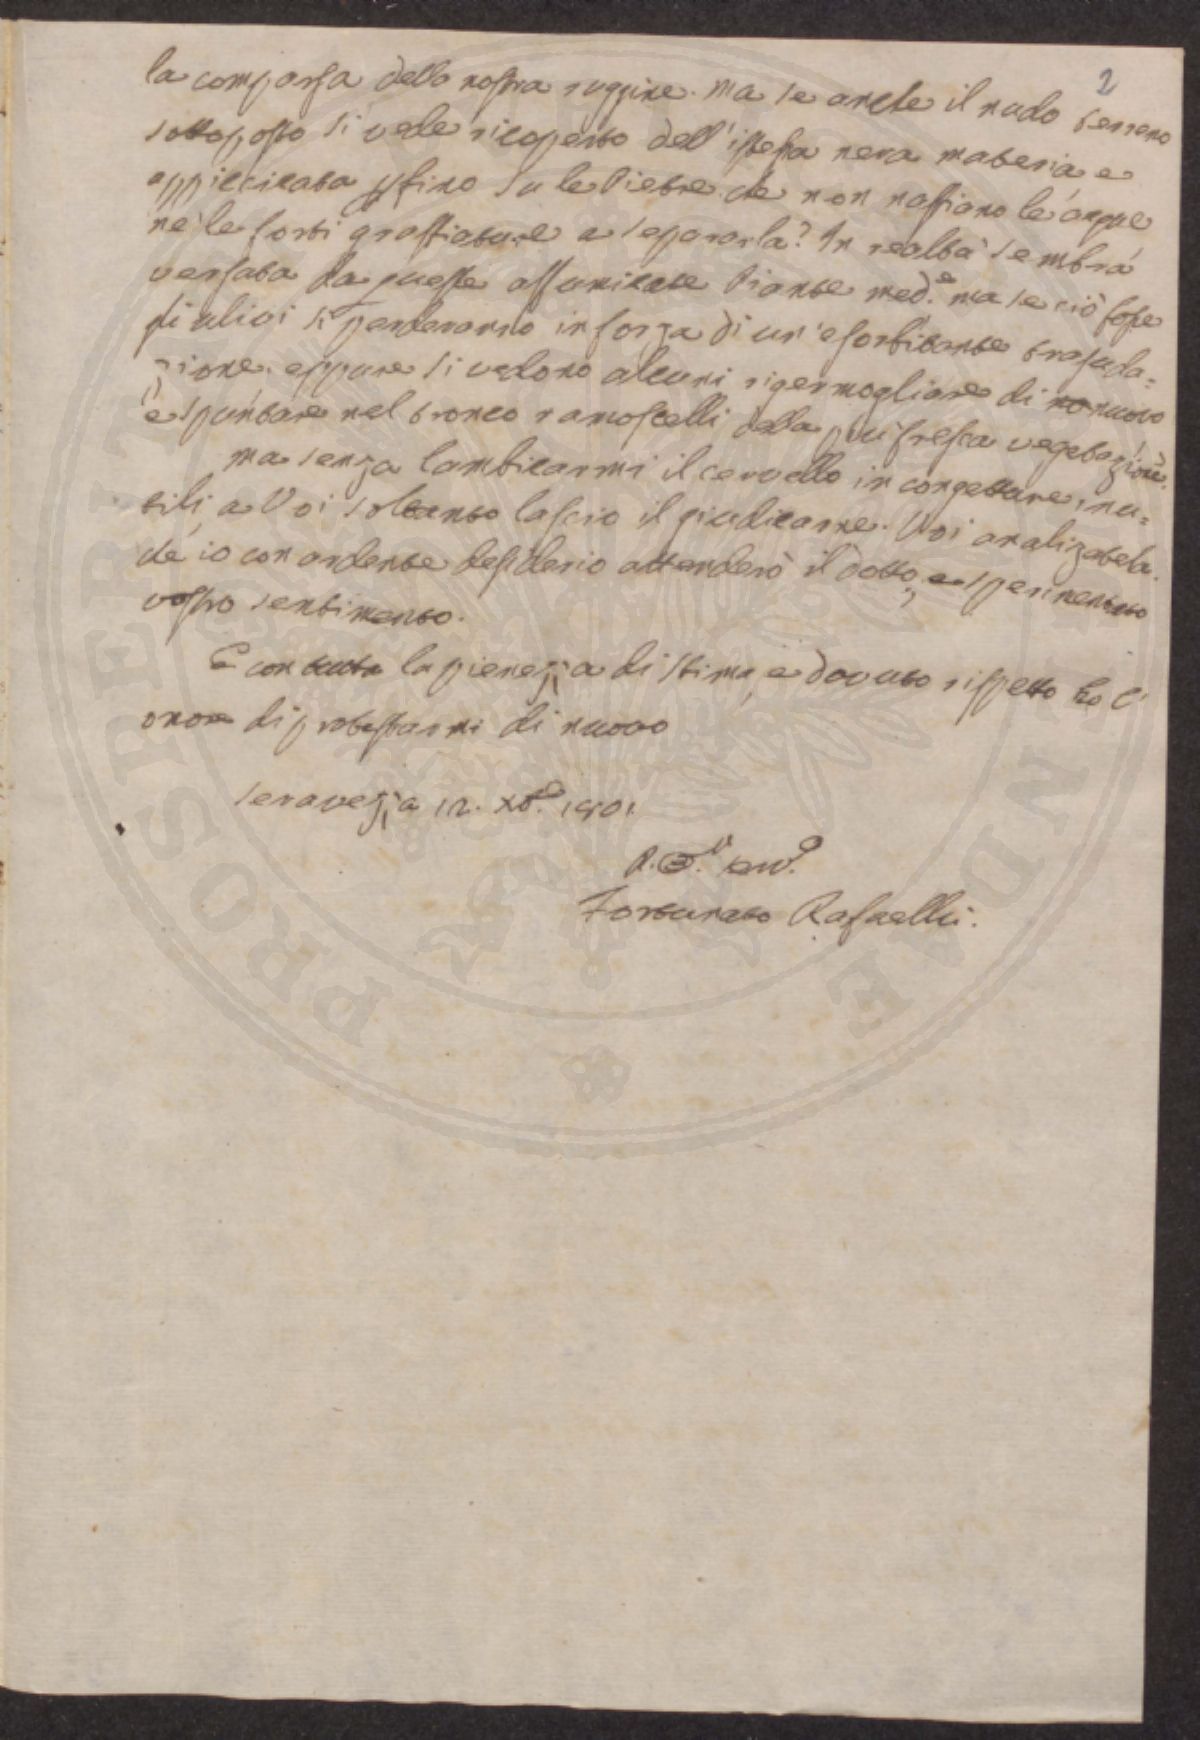 2
la comparsa della nostra ruggine. ma se anche il nudo terreno
sottoposto si vede ricoperto dell'istessa nera materia e
appiccicata sfino su le Pietre che non bastano le acque
nè le forti graffiature a separarla? In realtà sembra
versata da queste affumicate Piante med.e ma se ciò fosse
gli ulivi si perderanno in forza di un'esorbitante trasuda=
zione. eppure si vedono alcuni rigermogliare di nuovo
e spuntare nel tronco ramoscelli della più fresca vegetazione.
ma senza lambicarmi il cervello in congetture inu=
tili, a Voi soltanto lascio il giudicarne. Voi analizatela.
che io con ardente desiderio attenderò il dotto, e sperimentato
vostro sentimento.
E con tutta la pienezza di stima, e dovuto rispetto ho l'
onore di protestarmi di nuovo
Seravezza 12. Xb.e 1801.
Fortunato Rafaelli.
PROSPERITATI
UNDAE